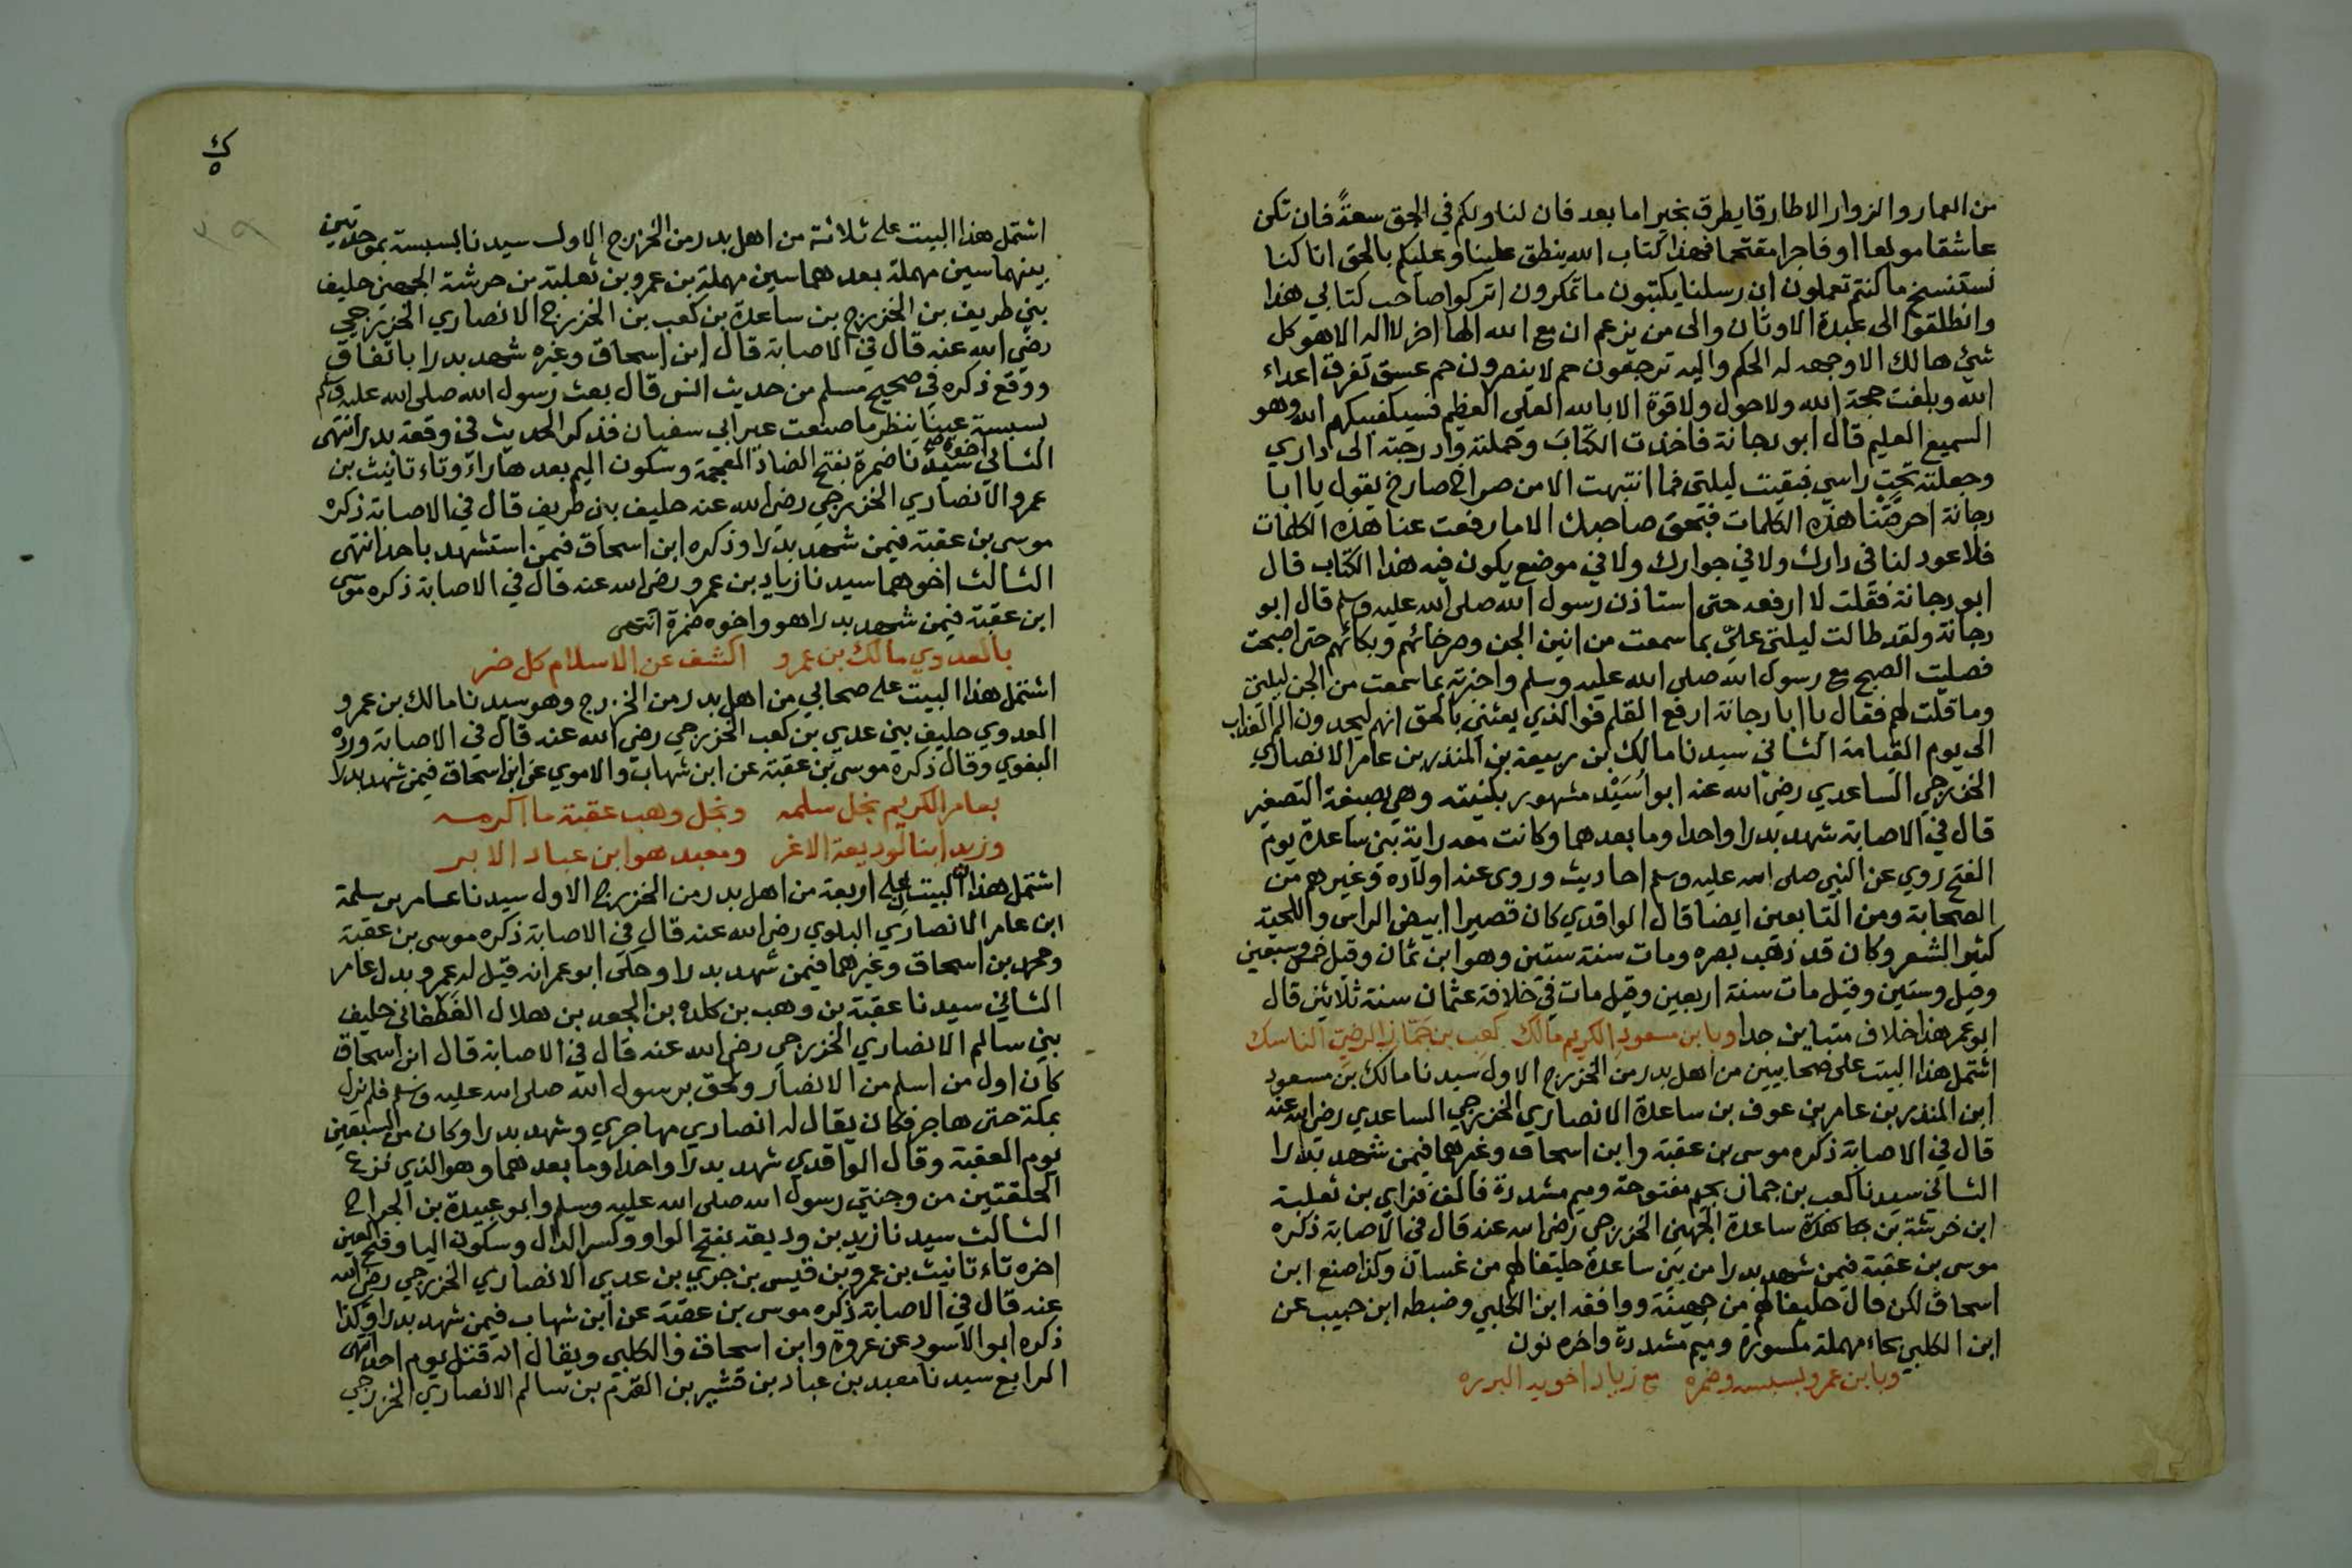 من العمار والزوار الا طارقا يطرق بخير اما بعد فان لنا ولكم في الحق سعةً فان تكن
عاشقا مولعا او فاجرا مقتحما فهذا كتاب الله ينطق علينا وعليكم بالحق انا كنا
نستنسخ ما كنتم تعملون ان رسلنا يكتبون ما تمكرون اتركوا صاحب كتابي هذا
وانطلقوا الى عبدة الاوثان والى من يزعم ان مع الله الها اخر لا اله الا هو كل
شئ هالك الا وجهه له الحكم واليه ترجعون حم لا ينصرون حم عسق تفرق اعداء
الله وبلغت حجة الله ولا حول ولا قوة الا بالله العلي العظيم فسيكفيكهم الله وهو
السميع العليم قال ابو دجانة فاخذت الكتاب وحملته وادرجته الى داري
وجعلته تحت راسي فبقيت ليلتي فما انتبهت الا من صراخ صارخ يقول يا ابا
دجانة احرقتنا هذه الكلمات فبحق صاحبك الا ما رفعت عنا هذه الكلمات
فلا عود لنا في دارك ولا في جوارك ولا في موضع يكون فيه هذا الكتاب قال
ابو دجانة فقلت لا ارفعه حتى استاذن رسول الله صلى الله عليه وسلم قال ابو
دجانة ولقد طالت ليلتي عليّ بما سمعت من انين الجن وصراخائهم وبكائهم حتى اصبحت
فصليت الصبح مع رسول الله صلى الله عليه وسلم واخبرته بما سمعت من الجن ليلتي
وما قلت لهم فقال يا ابا دجانة ارفع القلم فو الذي بعثني بالحق انهم ليجدون الم العذاب
الى يوم القيامة الثاني سيدنا مالك بن ربيعة بن المنذر بن عامر الانصاري
الخزرجي الساعدي رضي الله عنه ابو اُسَيْد مشهور بكنيته وهي بصيغة التصغير
قال في الاصابة شهد بدرا واحدا وما بعدهما وكانت معه راية بني ساعدة يوم
الفتح روي عن النبي صلى الله عليه وسلم احاديث وروى عنه اولاده وغيرهم من
الصحابة ومن التابعين ايضا قال الواقدي كان قصيرا ابيض الراس واللحية
كثير الشعر وكان قد ذهب بصره ومات سنة ستين وهو ابن ثمان وقيل خمس وسبعين
وقيل وستين وقيل مات سنة اربعين وقيل مات في خلافة عثمان سنة ثلاثين قال
ابو عمر هذا خلاف متباين جدا وبابن مسعود الكريم مالك كعب بن جَمَّاز الرضي الناسك
اشتمل هذا البيت على صحابيين من اهل بدر من الخزرج الاول سيدنا مالك بن مسعود
ابن المنذر بن عامر بن عوف بن ساعدة الانصاري الخزرجي الساعدي رضي الله عنه
قال في الاصابة ذكره موسى بن عقبة وابن اسحاق وغيرهما فيمن شهد بدرا
الثاني سيدنا كعب بن جماز بجيم مفتوحة وميم مشددة فالف فزاي بن ثعلبة
ابن خرشة بن جاهدة ساعدة الجهني الخزرجي رضي الله عنه قال في الاصابة ذكره
موسى بن عقبة فيمن شهد بدرا من بني ساعدة حليفا لهم من غسان وكذا صنع ابن
اسحاق لكن قال حليفا لهم من جهينة ووافقه ابن الكلبي وضبطه ابن حبيب عن
ابن الكلبي بحاء مهملة مكسورة وميم مشددة واخره نون
وبابن عمرو بسبسه وضمره مع زياد اخويه البرره
ك
٥
٣٩
اشتمل هذا البيت على ثلاثة من اهل بدر من الخزرج الاول سيدنا بسبسة بموحدتين
بينهما سين مهملة بعدهما سين مهملة بن عمرو بن ثعلبة بن خرشة الجهني حليف
بني طريف بن الخزرج بن ساعدة بن كعب بن الخزرج الانصاري الخزرجي
رضي الله عنه قال في الاصابة قال ابن اسحاق وغيره شهد بدرا باتفاق
ووقع ذكره في صحيح مسلم من حديث انس قال بعث رسول الله صلى الله عليه وسلم
بسبسة عينا ينظر ما صنعت عير ابي سفيان فذكر الحديث في وقعة بدر انتهى
الثاني اخوه سيدنا ضمرة بفتح الضاد المعجمة وسكون الميم بعدها راء وتاء تانيث بن
عمرو الانصاري الخزرجي رضي الله عنه حليف بني طريف قال في الاصابة ذكره
موسى بن عقبة فيمن شهد بدرا وذكره ابن اسحاق فيمن استشهد باحد انتهى
الثالث اخوهما سيدنا زياد بن عمرو رضي الله عنه قال في الاصابة ذكره موسى
ابن عقبة فيمن شهد بدرا هو واخوه ضمرة انتهى
بالعدوي مالك بن عمرو اكشف عن الاسلام كل ضر
اشتمل هذا البيت على صحابي من اهل بدر من الخزرج وهو سيدنا مالك بن عمرو
العدوي حليف بني عدي بن كعب الخزرجي رضي الله عنه قال في الاصابة ورده
البغوي وقال ذكره موسى بن عقبة عن ابن شهاب والاموي عن ابن اسحاق فيمن شهد بدرا
بعامر الكريم نجل سلمه ونجل وهب عقبة ما اكرمه
وزيد ابنا لوديعة الاغر ومعبد هو ابن عباد الابر
اشتمل هذان البيتان على اربعة من اهل بدر من الخزرج الاول سيدنا عامر بن سلمة
ابن عامر الانصاري البلوي رضي الله عنه قال في الاصابة ذكره موسى بن عقبة
ومحمد بن اسحاق وغيرهما فيمن شهد بدرا وحكى ابو عمر انه قيل له عمرو بدل عامر
الثاني سيدنا عقبة بن وهب بن كلدة بن الجعد بن هلال الغَطَفاني حليف
بني سالم الانصاري الخزرجي رضي الله عنه قال في الاصابة قال ابن اسحاق
كان اول من اسلم من الانصار ولحق برسول الله صلى الله عليه وسلم فلم يزل
بمكة حتى هاجر فكان يقال له انصاري مهاجري وشهد بدرا وكان من السبعين
يوم العقبة وقال الواقدي شهد بدرا واحدا وما بعدهما وهو الذي نزع
الحلقتين من وجنتي رسول الله صلى الله عليه وسلم وابو عبيدة بن الجراح
الثالث سيدنا زيد بن وديعة بفتح الواو وكسر الدال وسكون اليا وفتح العين
اخره تاء تانيث بن عمرو بن قيس بن جزي بن عدي الانصاري الخزرجي رضي الله
عنه قال في الاصابة ذكره موسى بن عقبة عن ابن شهاب فيمن شهد بدرا وكذا
ذكره ابو الاسود عن عروة وابن اسحاق والكلبي ويقال انه قتل يوم احد انتهى
الرابع سيدنا معبد بن عباد بن قشير بن القدم بن سالم الانصاري الخزرجي